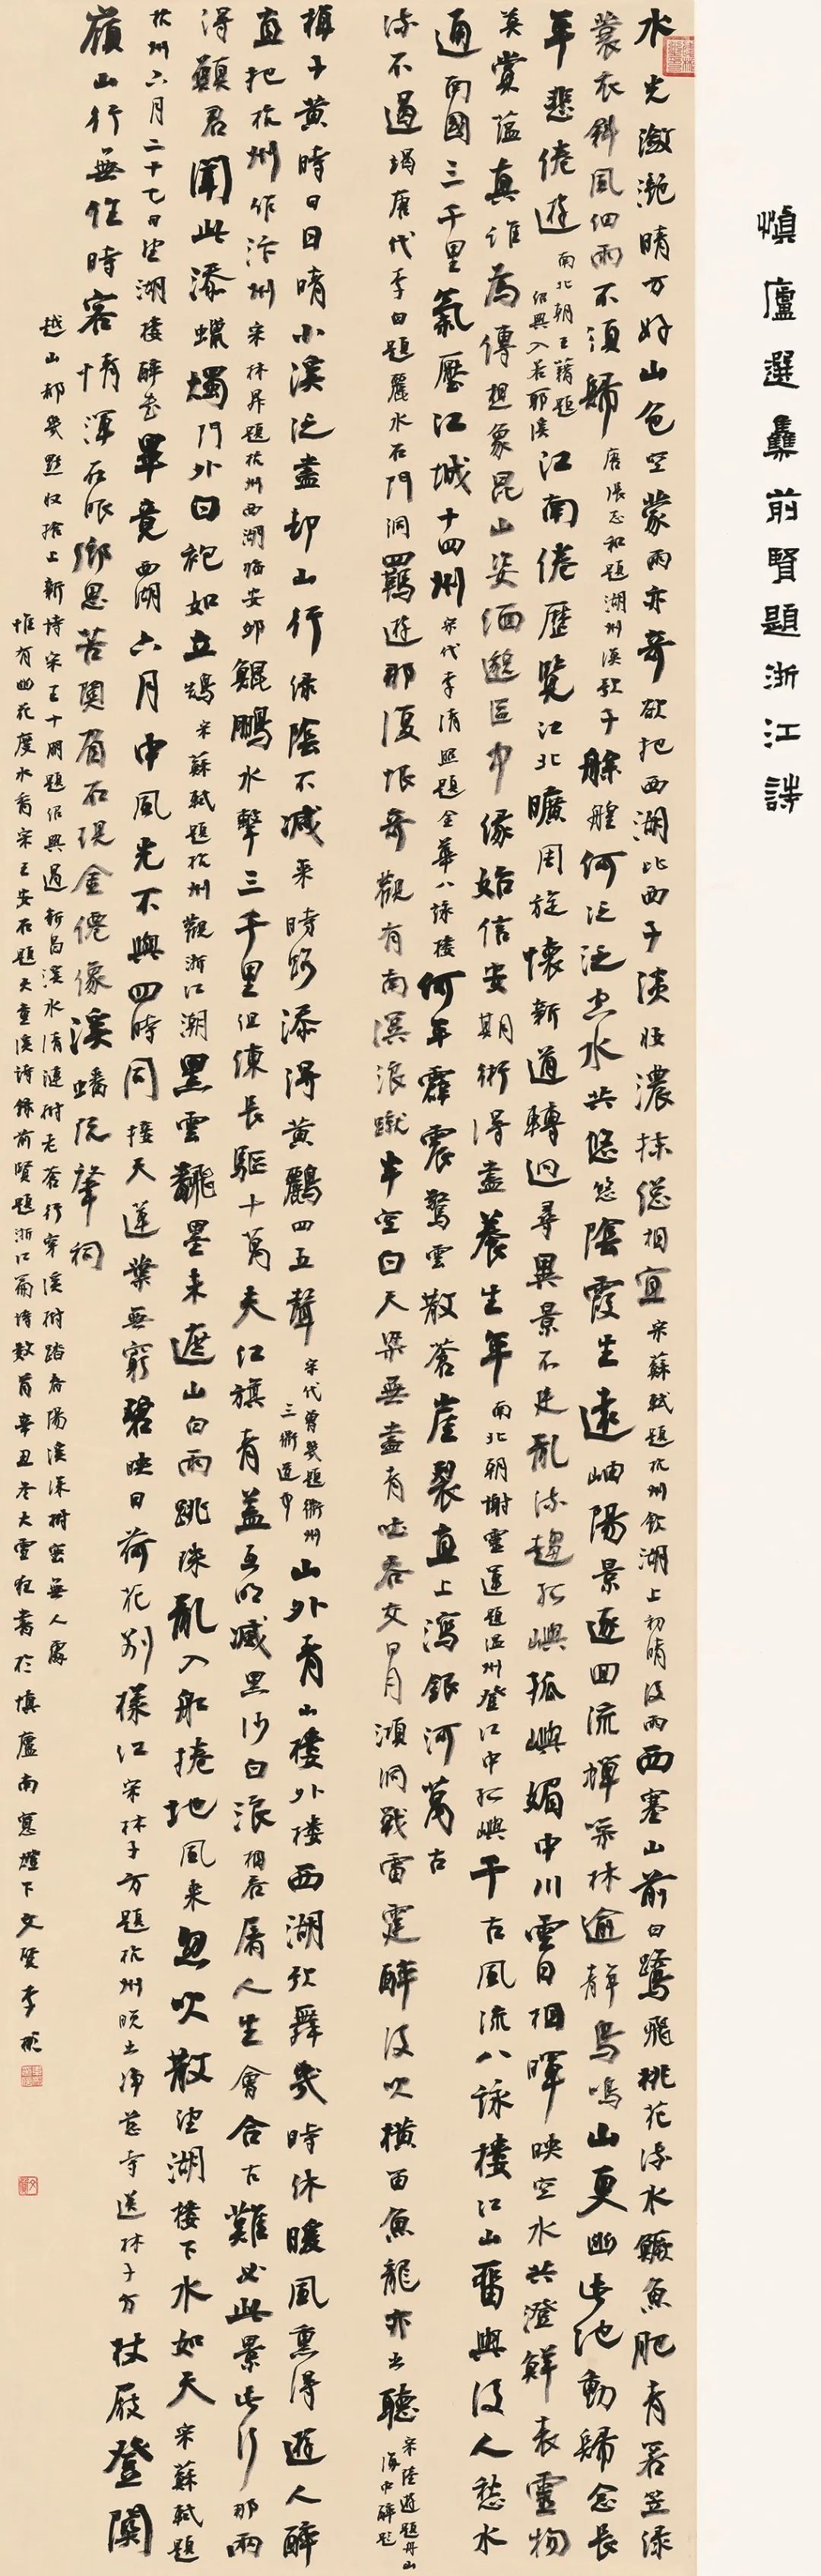 慎廬選集前賢題浙江詩
水光瀲灔晴方好山色空蒙雨亦奇欲把西湖比西子淡妝濃抹總相宜宋蘇軾題杭州飲湖上初晴後雨西塞山前白鷺飛桃花流水鱖魚肥青箬笠綠
蓑衣斜風細雨不須歸唐張志和題湖州漁歌子艅艎何泛泛空水共悠悠陰霞生遠岫陽景逐回流蟬噪林逾靜鳥鳴山更幽此地動歸念長
年悲倦遊南北朝王籍題紹興入若耶溪江南倦歷覽江北曠周旋懷新道轉迥尋異景不延亂流趨孤嶼孤嶼媚中川雲日相暉映空水共澄鮮表靈物
莫賞蘊真誰為傳想象昆山姿緬邈區中緣始信安期術得盡養生年南北朝謝靈運題溫州登江中孤嶼千古風流八詠樓江山留與後人愁水
通南國三千里氣壓江城十四州宋代李清照題金華八詠樓何年霹靂驚雲散蒼崖裂直上瀉銀河萬古
流不遏竭唐代李白題麗水石門洞羈遊那復恨奇觀有南溟浪蹴半空白天梁無盡青吐吞交日月澒洞戰雷霆醉後吹橫笛魚龍亦出聽宋陸游題舟山海中醉題
梅子黃時日日晴小溪泛盡卻山行綠陰不減來時路添得黃鸝四五聲宋代曾幾題衢州三衢道中山外青山樓外樓西湖歌舞幾時休暖風熏得遊人醉
直把杭州作汴州宋林昇題杭州西湖臨安邸鯤鵬水擊三千里組練長驅十萬夫紅旗青蓋互明滅黑沙白浪相吞屠人生會合古難必此景此行那兩
得願君聞此添蠟燭門外白袍如立鵠宋蘇軾題杭州觀浙江潮黑雲翻墨未遮山白雨跳珠亂入船捲地風來忽吹散望湖樓下水如天宋蘇軾題
杭州六月二十七日望湖樓醉書畢竟西湖六月中風光不與四時同接天蓮葉無窮碧映日荷花別樣紅宋林子方題杭州曉出淨慈寺送林子方杖屐登關
嶺山行無住時客情渾在眠鄉思苦關眉石現金僊像溪蟠阮肇祠
越山都幾點收拾上新詩宋王十朋題紹興過新昌溪水清漣樹老蒼行穿溪樹踏春陽溪深樹密無人處
惟有幽花度水香宋王安石題天童溪詩錄前賢題浙江兩詩數首辛丑冬大雪夜書於慎廬南窗燈下文賢李彬